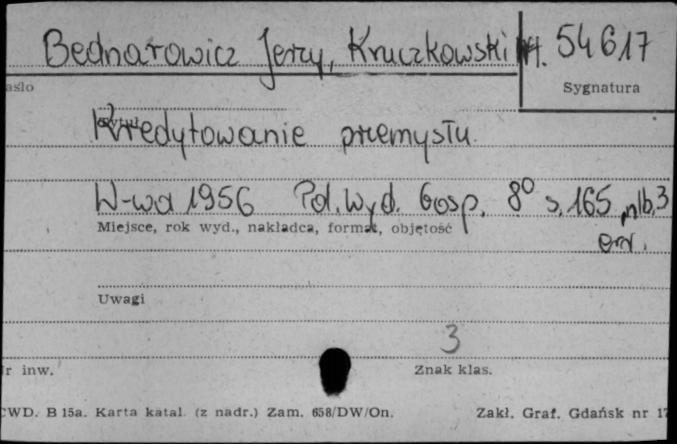 Bednarowicz Jerzy, Kruczkowski 54617
Sygnatura
Kredytowanie przemysłu.
W-wa 1956 Pol. Wyd. Gosp. 8° s. 165, nlb. 3
Miejsce, rok wyd., nakładca, format, objętość
Uwagi
3
inw. Znak klas.
B 15a. Karta katal. (z nadr.) Zam. 658/DW/On. Zakł. Graf. Gdańsk nr